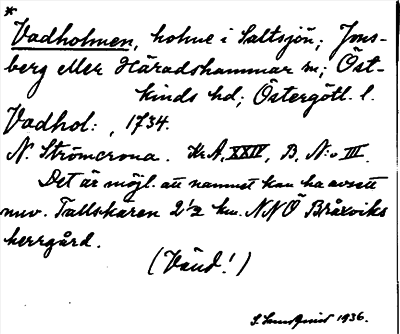 *
Vadholmen, holme i Saltsjön; Jons-
berg eller Häradshammar sn; Öst-
kinds hd; Östergötl. l.
Vadhol: , 1734.
N. Strömcrona. Kr.A, XXIV, B, N:o III.
Det är möjl. att namnet kan ha avsett
nuv. Tallskären 2 ½ km. NNÖ Bråxviks
herrgård.
(Vänd!)
S. Sundquist 1936.